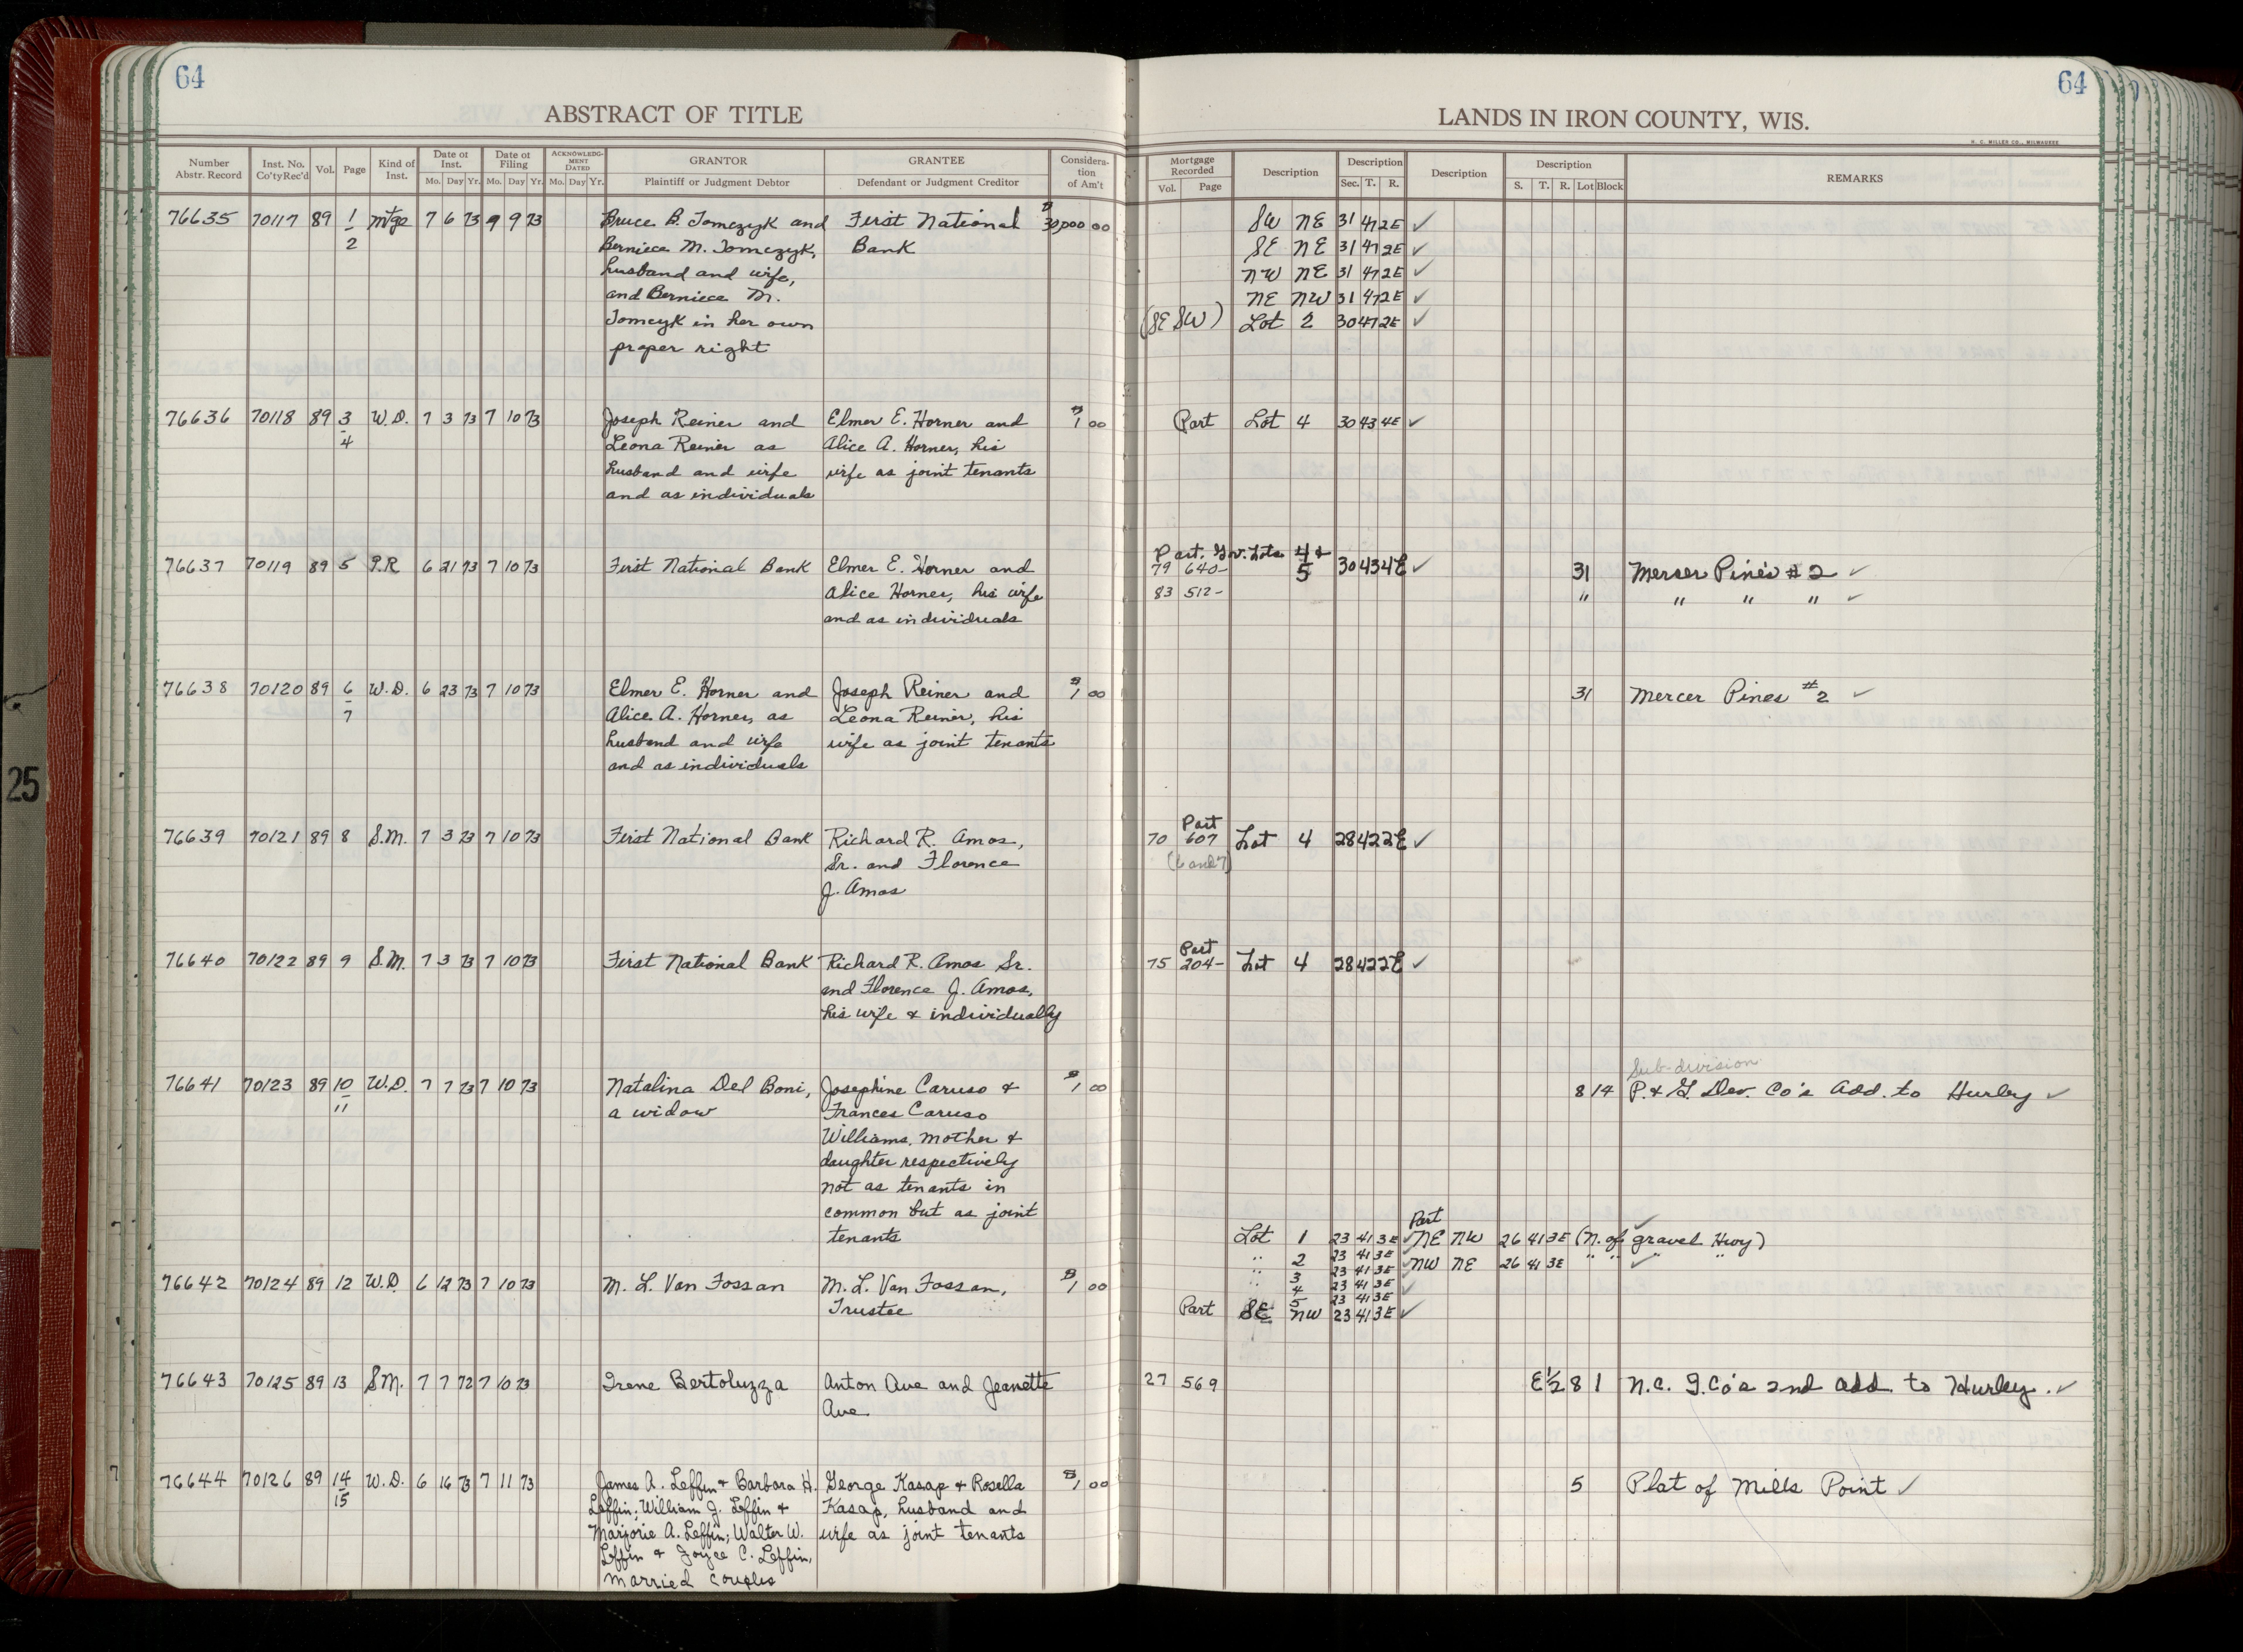 64
64
ABSTRACT OF TITLE
LANDS IN IRON COUNTY, WIS.
H. C. MILLER CO., MILWAUKEE
Number Abstr. Record Inst. No. Co'ty Rec'd Vol. Page Kind of Inst. Date of Inst. Mo. Day Yr. Date of Filing Mo. Day Yr. ACKNOWLEDGMENT DATED Mo. Day Yr. GRANTOR Plaintiff or Judgment Debtor GRANTEE Defendant or Judgment Creditor Consideration of Am't
Mortgage Recorded Vol. Page Description Description Sec. T. R. Description Description S. T. R. Lot Block REMARKS
76635 70117 89 1 Mtge 7 6 73 9 9 73 Bruce B. Tomczyk and First National $30,000 00 SW NE 31 47 2E ✓
2 Berniece M. Tomczyk, Bank SE NE 31 47 2E ✓
husband and wife, NW NE 31 47 2E ✓
and Berniece M. NE NW 31 47 2E ✓
Tomcyk in her own (SE SW) Lot 2 30 47 2E ✓
proper right
76636 70118 89 3 W.D. 7 3 73 7 10 73 Joseph Reiner and Elmer E. Horner and $1 00 Part Lot 4 30 43 4E ✓
4 Leona Reiner as Alice A. Horner, his
husband and wife wife as joint tenants
and as individuals
Part. Gov. Lots 4 &
76637 70119 89 5 P.R 6 21 73 7 10 73 First National Bank Elmer E. Horner and 79 640- 5 30 43 4E ✓ 31 Mercer Pines #2 ✓
Alice Horner, his wife 83 512- " " " " ✓
and as individuals
76638 70120 89 6 W.D. 6 23 73 7 10 73 Elmer E. Horner and Joseph Reiner and $1 00 31 Mercer Pines #2 ✓
7 Alice A. Horner, as Leona Reiner, his
husband and wife wife as joint tenants
and as individuals
Part
76639 70121 89 8 S.M. 7 3 73 7 10 73 First National Bank Richard R. Amos, 70 607 Lot 4 28 42 2E ✓
Sr. and Florence (6 and 7)
J. Amos
Part
76640 70122 89 9 S.M. 7 3 73 7 10 73 First National Bank Richard R. Amos Sr. 75 204- Lot 4 28 42 2E ✓
and Florence J. Amos,
his wife & individually
Sub-division
76641 70123 89 10 W.D. 7 7 73 7 10 73 Natalina Del Boni, Josephine Caruso & $1 00 8 14 P. & G. Dev. Co's Add. to Hurley ✓
11 a widow Frances Caruso
Williams, mother &
daughter respectively
not as tenants in
common but as joint
tenants
Part
Lot 1 23 41 3E ✓ NE NW 26 41 3E (N. of gravel Hwy) ✓
" 2 23 41 3E NW NE 26 41 3E " " " "
" 3 23 41 3E
76642 70124 89 12 W.D. 6 12 73 7 10 73 M. L. Van Fossan M. L. Van Fossan, $1 00 4 23 41 3E ✓
Trustee 5 23 41 3E
Part SE NW 23 41 3E ✓
76643 70125 89 13 S.M. 7 7 72 7 10 73 Irene Bertoluzza Anton Ave and Jeanette 27 569 E½ 8 1 N.C. I. Co's 2nd Add. to Hurley. ✓
Ave
76644 70126 89 14 W.D. 6 16 73 7 11 73 James A. Leffin & Barbara H. George Kasap & Rosella $1 00 5 Plat of Mills Point ✓
15 Leffin; William J. Leffin & Kasap, husband and
Marjorie A. Leffin; Walter W. wife as joint tenants
Leffin & Joyce C. Leffin,
Married couples
25